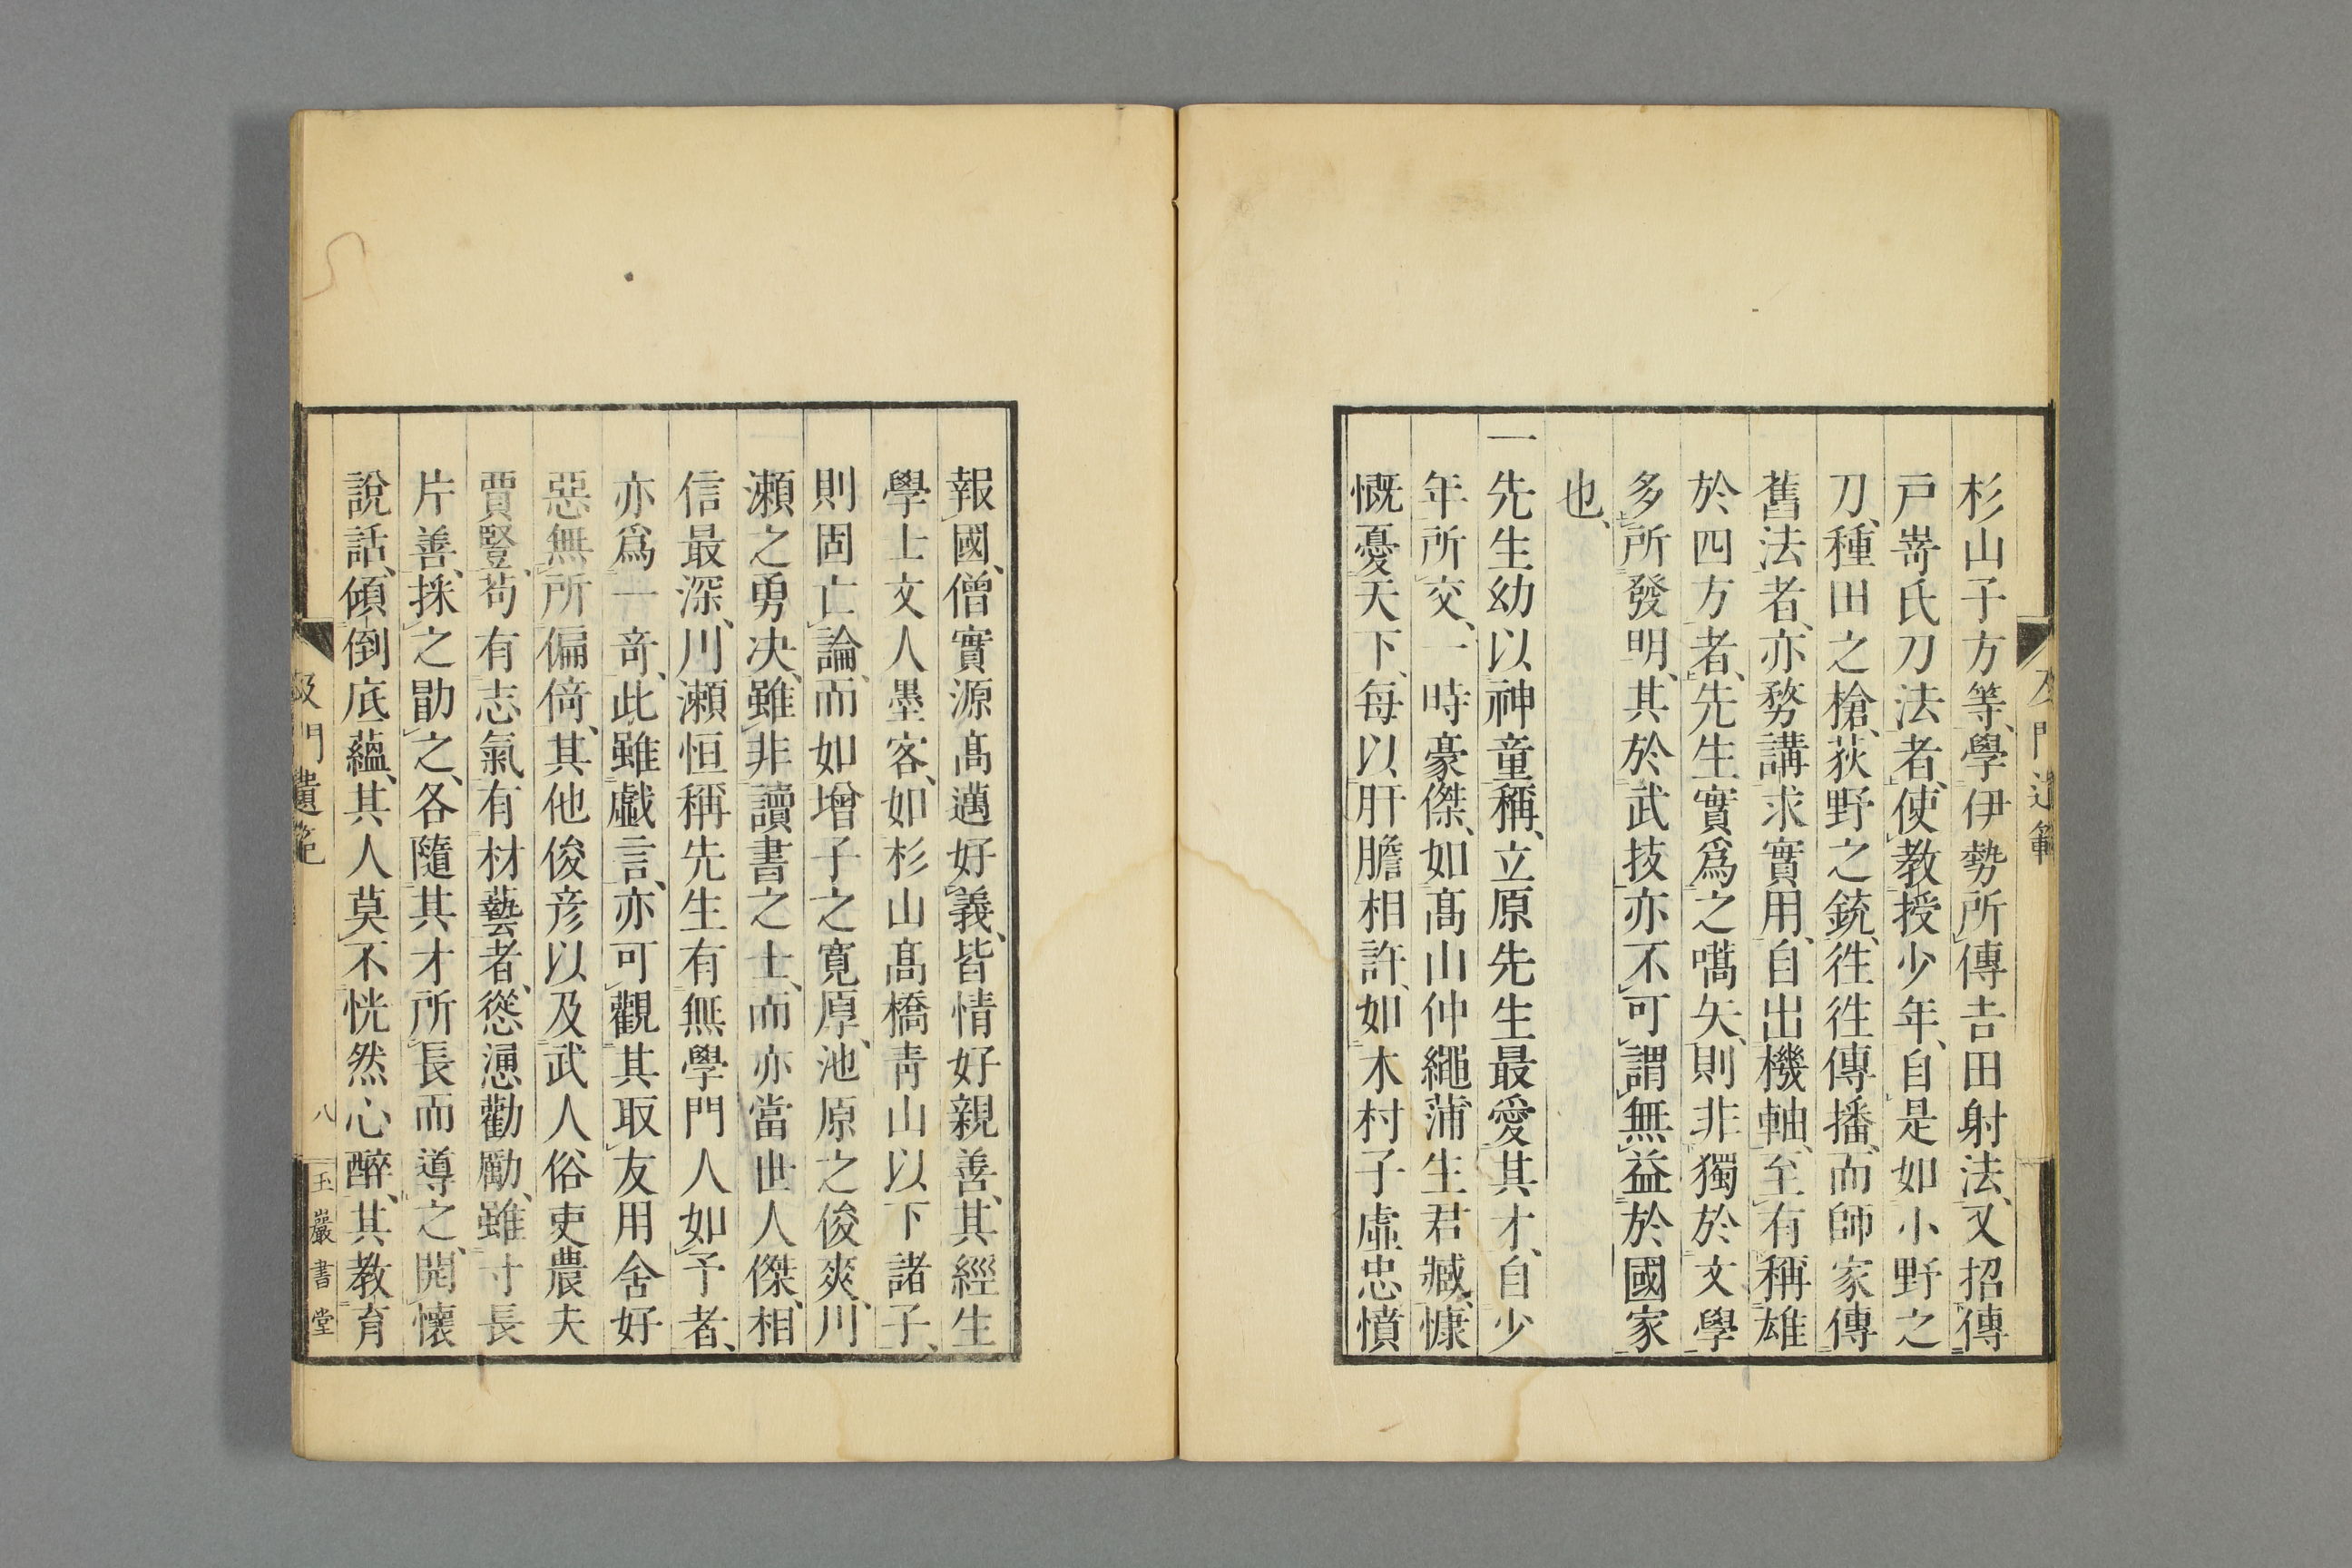 杉山子方等、學伊勢所傳吉田射法、又招傳
戸嵜氏刀法者、使教授少年、自是如小野之
刀、種田之槍、荻野之銃、徃徃傳播、而師家傳
舊法者、亦務講求實用、自出機軸、至有稱雄
於四方者、先生實爲之嚆矢、則非獨於文學
多所發明、其於武技亦不可謂無益於國家
也、
一先生幼以神童稱、立原先生最愛其才、自少
年所交、一時豪傑、如髙山仲繩、蒲生君臧、慷
慨憂天下、毎以肝膽相許、如木村子虛忠憤
報國、僧實源髙邁好義、皆情好親善、其經生
學士文人墨客、如杉山髙橋青山以下諸子、
則固亡論、而如增子之寬厚、池原之俊爽、川
瀬之勇决、雖非讀書之士、而亦當世人傑、相
信最深、川瀬恒稱先生有無學門人如予者、
亦爲一奇、此雖戯言、亦可觀其取友用舍好
惡無所偏倚、其他俊彦以及武人俗吏農夫
賈豎、苟有志氣有材藝者、慫慂勸勵、雖寸長
片善、採之勖之、各隨其才所長而導之、開懷
說話、傾倒底蘊、其人莫不恍然心醉、其教育
及門遺範
八
玉巖書堂